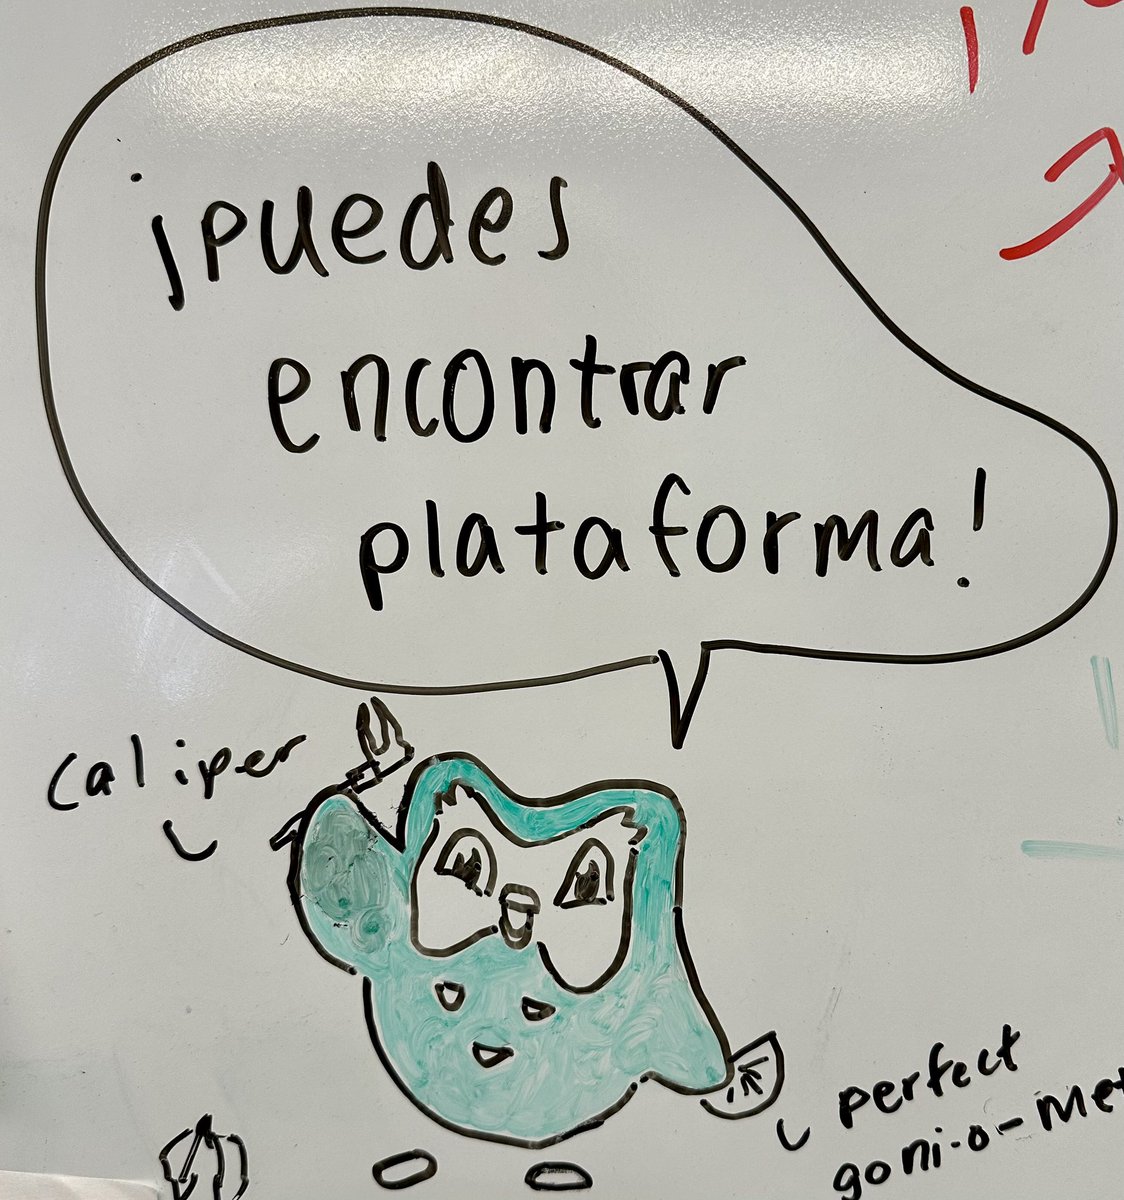 ¡puedes
encontrar
plataforma!
caliper
perfect
goni-o-met